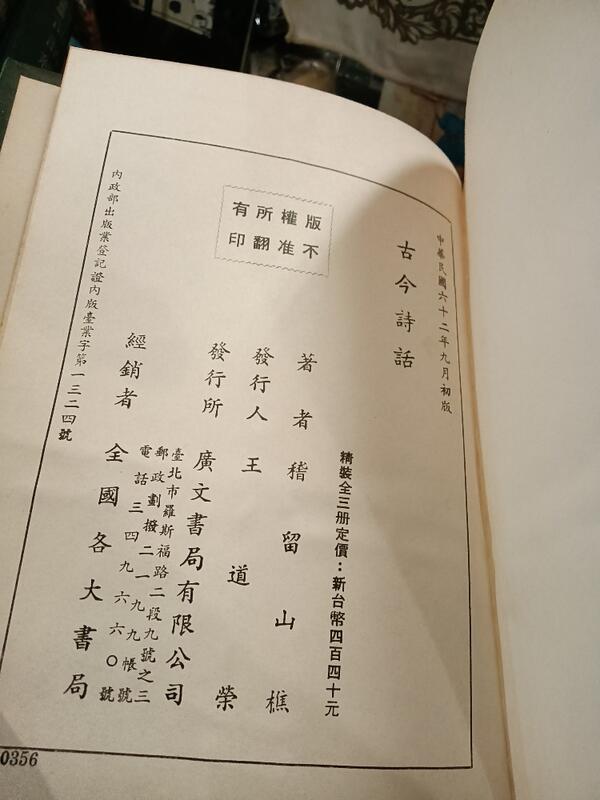 中華民國六十二年九月初版
古今詩話
精裝全三册定價：新台幣四百四十元
版權所有
不准翻印
著者 稽留山樵
發行人 王道榮
發行所 廣文書局有限公司
臺北市羅斯福路二段九號之三
郵政劃撥二一九九帳號
電話三四九六六〇號
經銷者 全國各大書局
內政部出版業登記證內版臺業字第一三二四號
0356